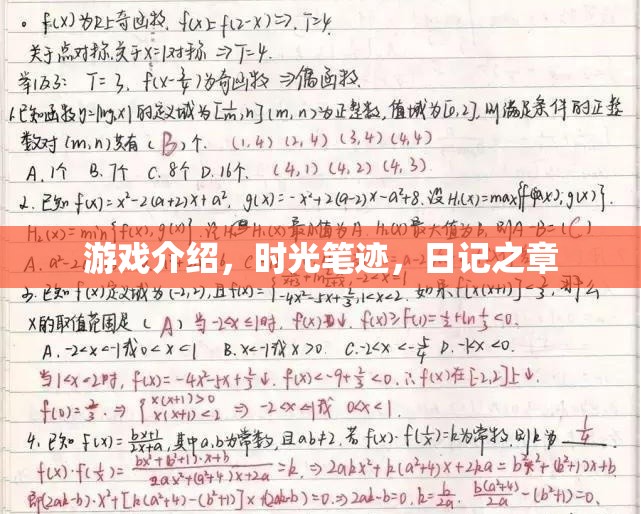 。f(x)为R上奇函数, f(x)=f(2-x)⇒T=4.
关于点对称,关于x=1对称 ⇒T=4.
T=3, f(x-3/4)为奇函数 ⇒偶函数.
的定义域为[1/m,n](m,n为正整数,值域为[0,2],则满足条件的正整
数对(m,n)共有(B)个. (1,4)(2,4)(3,4)(4,4)
A.1个 B.7个 C.8个 D.16个. (4,1)(4,2)(4,3)
2.已知f(x)=x²-2(a+2)x+a², g(x)=-x²+2(a-2)x-a²+8.设H₁(x)=max{f(x),g(x)}.
H₂(x)=min{f(x),g(x)}.
游戏介绍，时光笔迹，日记之章
3.已知f(x)定义域为(-2,2),且f(x)=
-4x²-5x+2/3,1<x<2. 如果f[x(x+1)]<2/3,那么
x的取值范围是(A)当-2<x≤1时, f(x)
A.-2<x<-1或0<x<1 B.x<-1或x>0. C.-2<x<-5/4 D.-1<x<0.
当1<x<2时, f(x)=-4x²-5x+2/3↓. f(x)<-9+2/3<0.∴f(x)在[-2,2]上↓.
f(0)=2/3.⇒{x(x+1)>0
x(x+1)<2 ⇒ -2<x<-1或 0<x<1.
4.已知f(x)=bx+1/2x+a,其中a,b为常数,且ab≠2.若f(x)·f(1/x)=k为常数,则k为 1/4
f(x)·f(1/x)=bx²+(b²+1)·x+b/2ax²+(a²+4)x+2a=k.⇒2akx²+k(a²+4)x+2ka=bx²+(b²+1)x+b.
即(2ak-b)·x²+[k(a²+4)-(b²+1)]x+(2ak-b)=0.⇒2ak-b=0.k=b/2a. b(a²+4)/2a-(b²+1)=0.